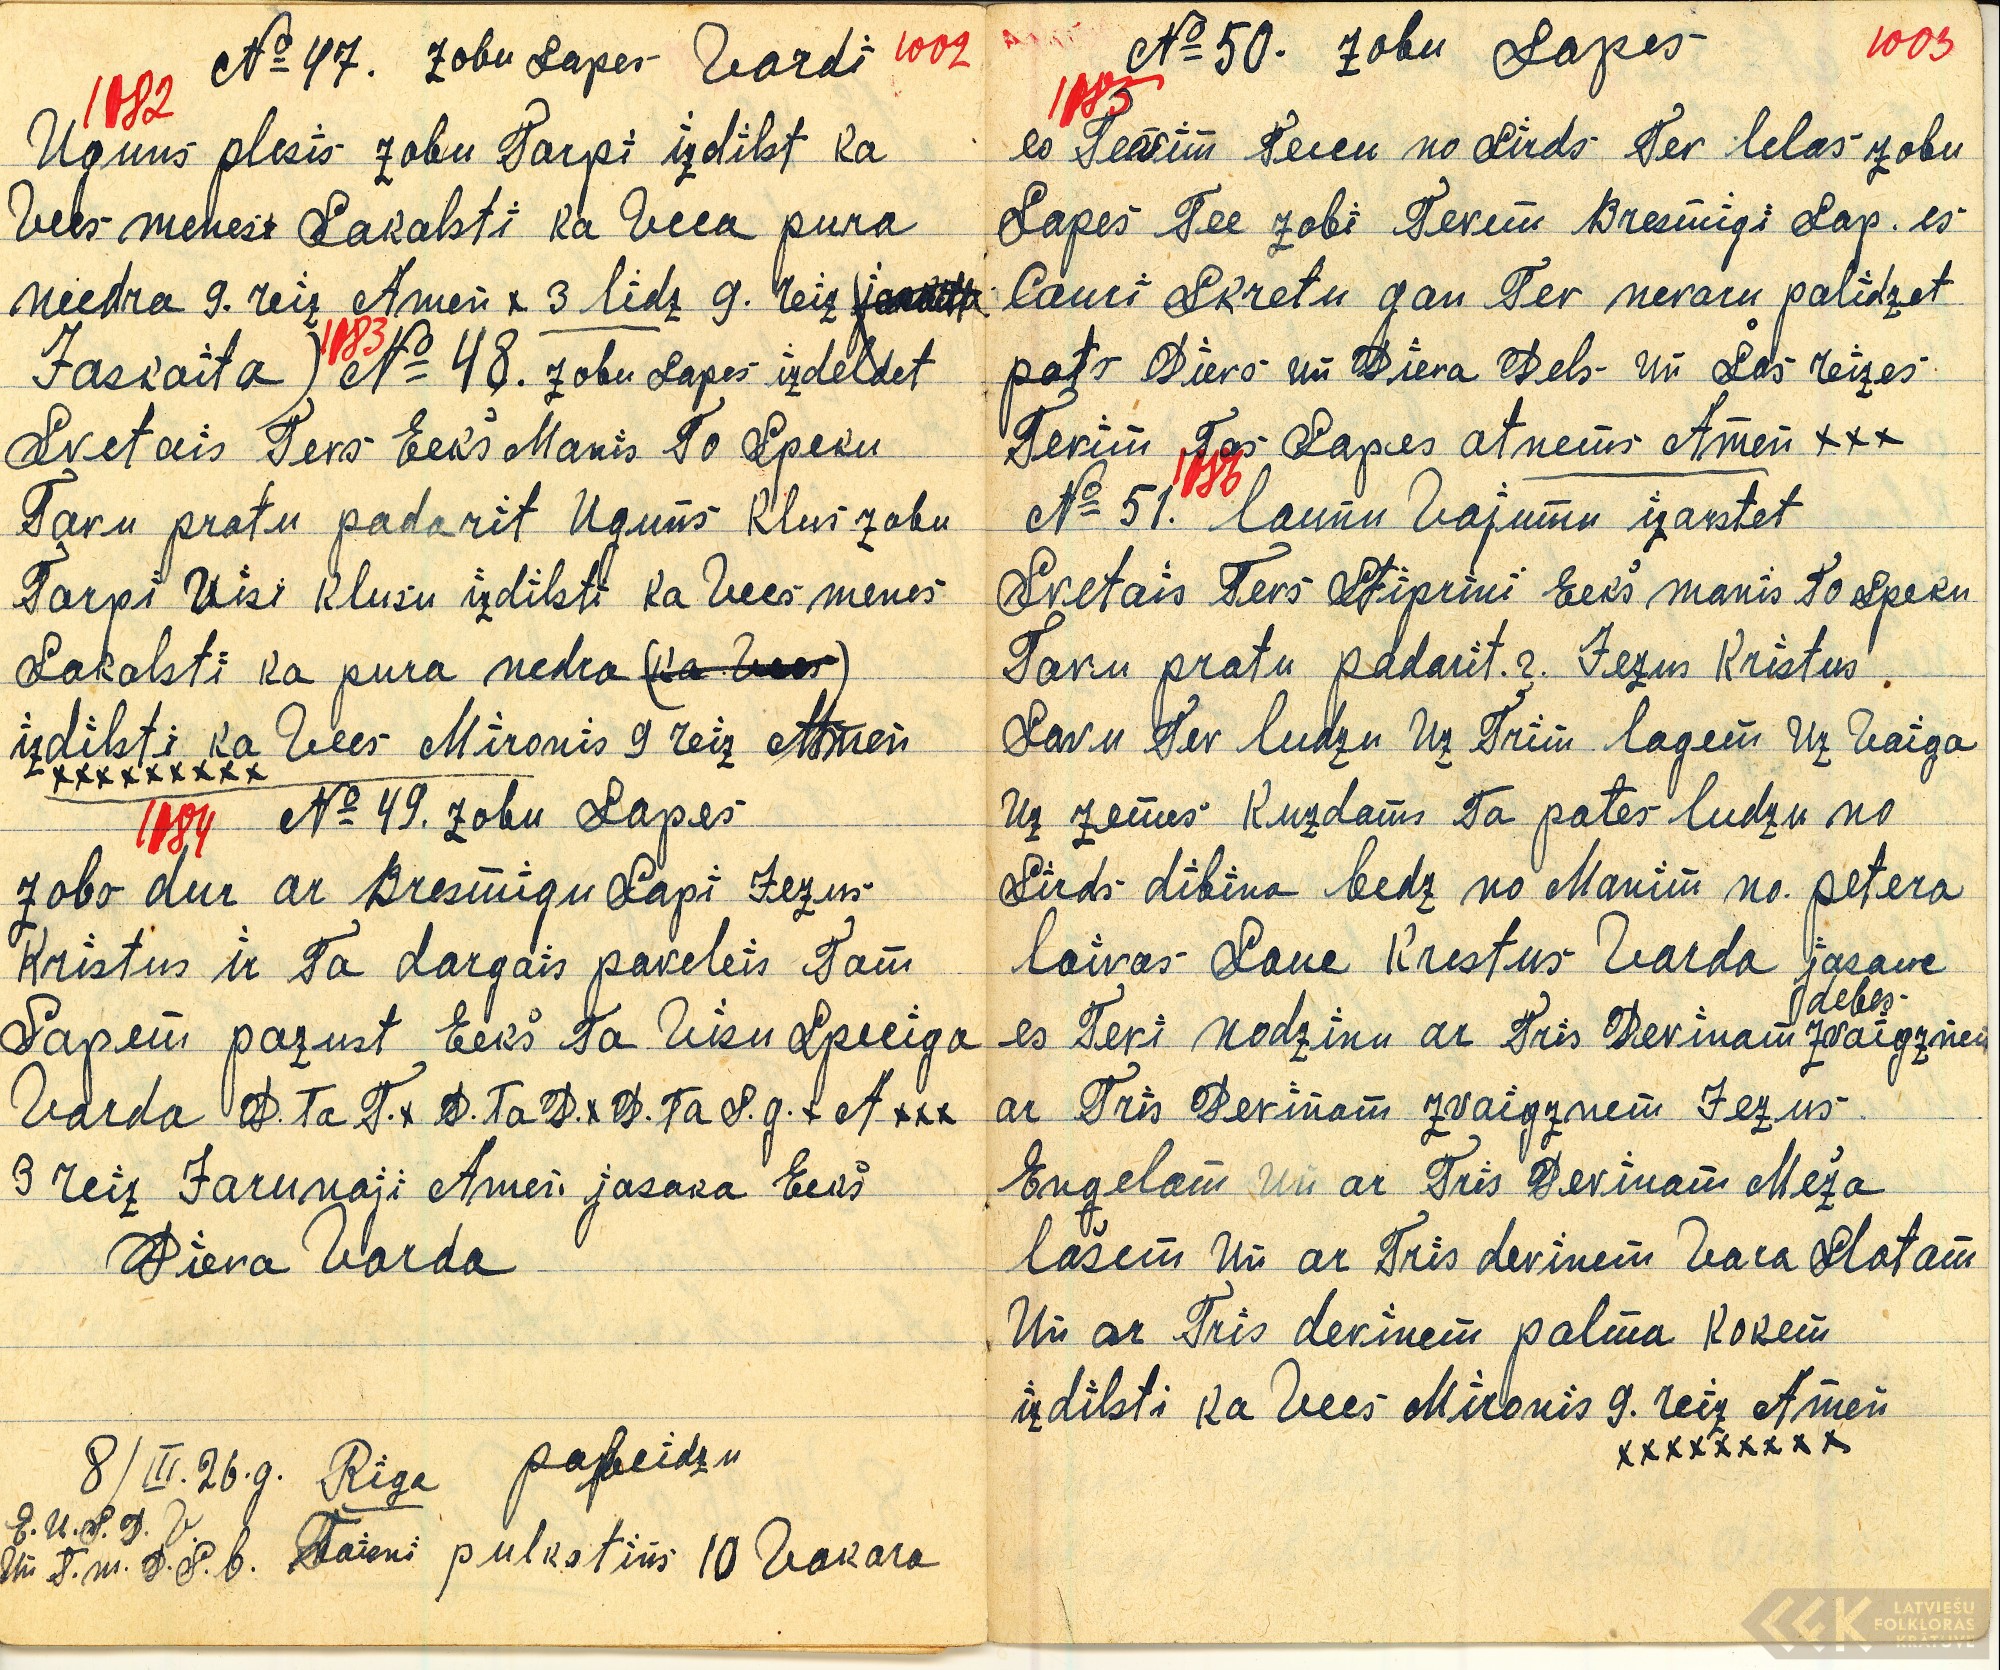 No 47. Zobu Sapes Vardi 1002
1082
Uguns plesis Zobu Tarpi izdilst ka
Vees menest Sakalsti ka Veca pura
needra 9. reiz Amen̄ x 3 lidz 9. reiz
Jaskaita) 1083 No 48. Zobu Sapes izdeldet
Svetais Tevs Eekš Manis To Speku
Tavu pratu padarit Uguns̄ Klus zobu
Tarpi Visi Klusu izdilsti ka Vees menes
Sakalsti ka pura nedra (ka Vees)
izdilsti ka Vees Mironis 9 reiz Amen̄
xxxxxxxxx
1084 No 49. Zobu Sapes
Zobs dur ar Bresm̄igu Sapi Jezus
Kristus ir Ta dargais paveleis Tam̄
Sapem̄ pazust Eekš Ta Visu Speciga
Varda D. Ta T. x D. Ta D. x D. Ta S. g. x A xxx
3 reiz Jarunaji Amen. jasaka Eekš
Dieva Varda
8/III. 26. g. Riga pabeidzu
E. U. S. D. V.
Un̄ T. m. D. S. b. pulkstins̄ 10 Vakara
No 50. Zobu Sapes 1003
1085
es Tevim̄ Teicu no Sirds Tev lelas zobu
Sapes Tee zobi Tevem̄ Bresm̄igi Sap. es
Cauri Skretu gan Tev nevaru palidzet
pats Dievs un̄ Dieva Dels un̄ Šas reizes
Tevim̄ Tas Sapes atnem̄s Am̄en̄ xxx
1086
No 51. laun̄u Vajum̄u izarstet
Svetais Tevs Stiprini Eekš manis To Speku
Tavu pratu padarit. 2. Jezus Kristus
Savu Tev ludzu Uz Trim̄ lagem̄ Uz Vaiga
Uz zem̄es Kuzdam̄s Ta pates ludzu no
Sirds dibina bedz no Manim̄ no. petera
laivas Saue Krustus Varda jasaue
debes
es Tevi nodzinu ar Tris Devinam̄ Zvaigznem
ar Tris Devin̄am̄ zvaigznem̄ Jezus
Engelam̄ Un̄ ar Tris Devinam̄ Meža
lašem̄ Un̄ ar Tris devinem̄ Vara Slotam̄
Un̄ ar Tris devinem̄ palm̄a Kokem̄
izdilsti ka Vees Mironis 9. reiz Am̄en̄
xxxxxxxxx
LATVIEŠU
FOLKLORAS
KRĀTUVE